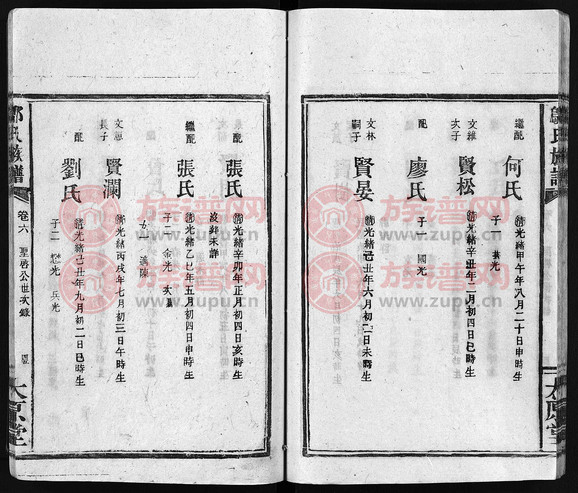 氏族譜
繼配
何氏
清光緒甲午年八月二十日申時生
子一 光
文維
次子
賢松
清光緒辛丑年二月初四日巳時生
配
廖氏
子一 國光
文林
嗣子
賢晏
清光緒己丑年六月初二日未時生
太原堂
族譜网
www.zupu.cn
族譜网
www.zupu.cn
配
張氏
清光緒辛卯年正月初四日亥時生
沒葬未詳
繼配
張氏
清光緒乙巳年五月初四日申時生
子二 金光
女一 滿
文
長子
賢瀾
清光緒丙戌年七月初三日午時生
配
劉氏
清光緒己丑年九月初二日巳時生
子二 光 兵光
鄔氏族譜
卷六
聖啓公世次錄
太原堂